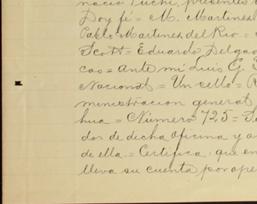 nacio Puchi, presentes
Doy fé = M. Martinez
Pablo Martinez del Rio =
Scott = Eduardo Delgado
cas = Ante mi Luis G.
Nacional = Un sello =
ministracion general
hua = Número 725 =
dos de dicha oficina y a
de ella = Certifica: que en
lleva su cuenta por